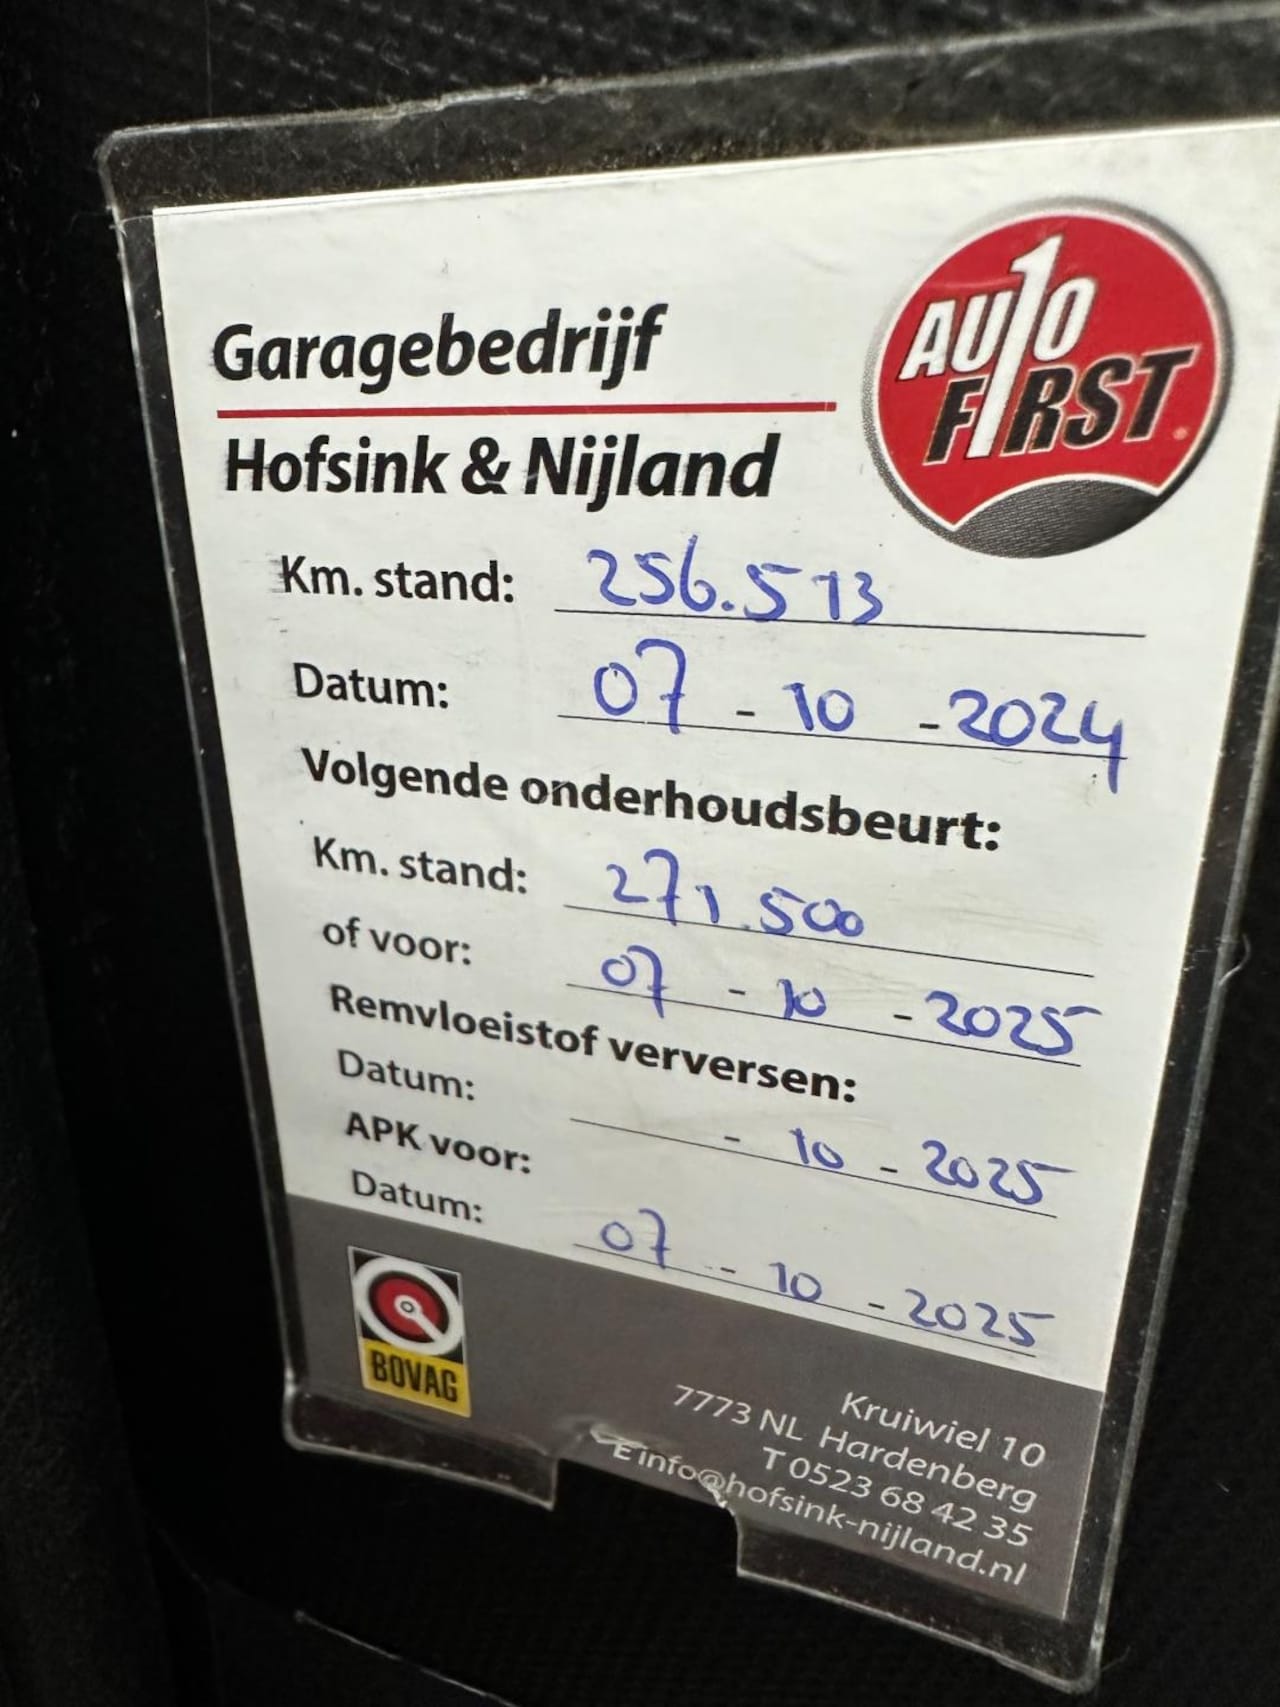 Garagebedrijf
Hofsink & Nijland
AUTO
FIRST
Km. stand: 256.513
Datum: 07 - 10 - 2024
Volgende onderhoudsbeurt:
Km. stand: 271.500
of voor: 07 - 10 - 2025
Remvloeistof verversen:
Datum: - 10 - 2025
APK voor:
Datum: 07 - 10 - 2025
BOVAG
Kruiwiel 10
7773 NL Hardenberg
T 0523 68 42 35
E info@hofsink-nijland.nl